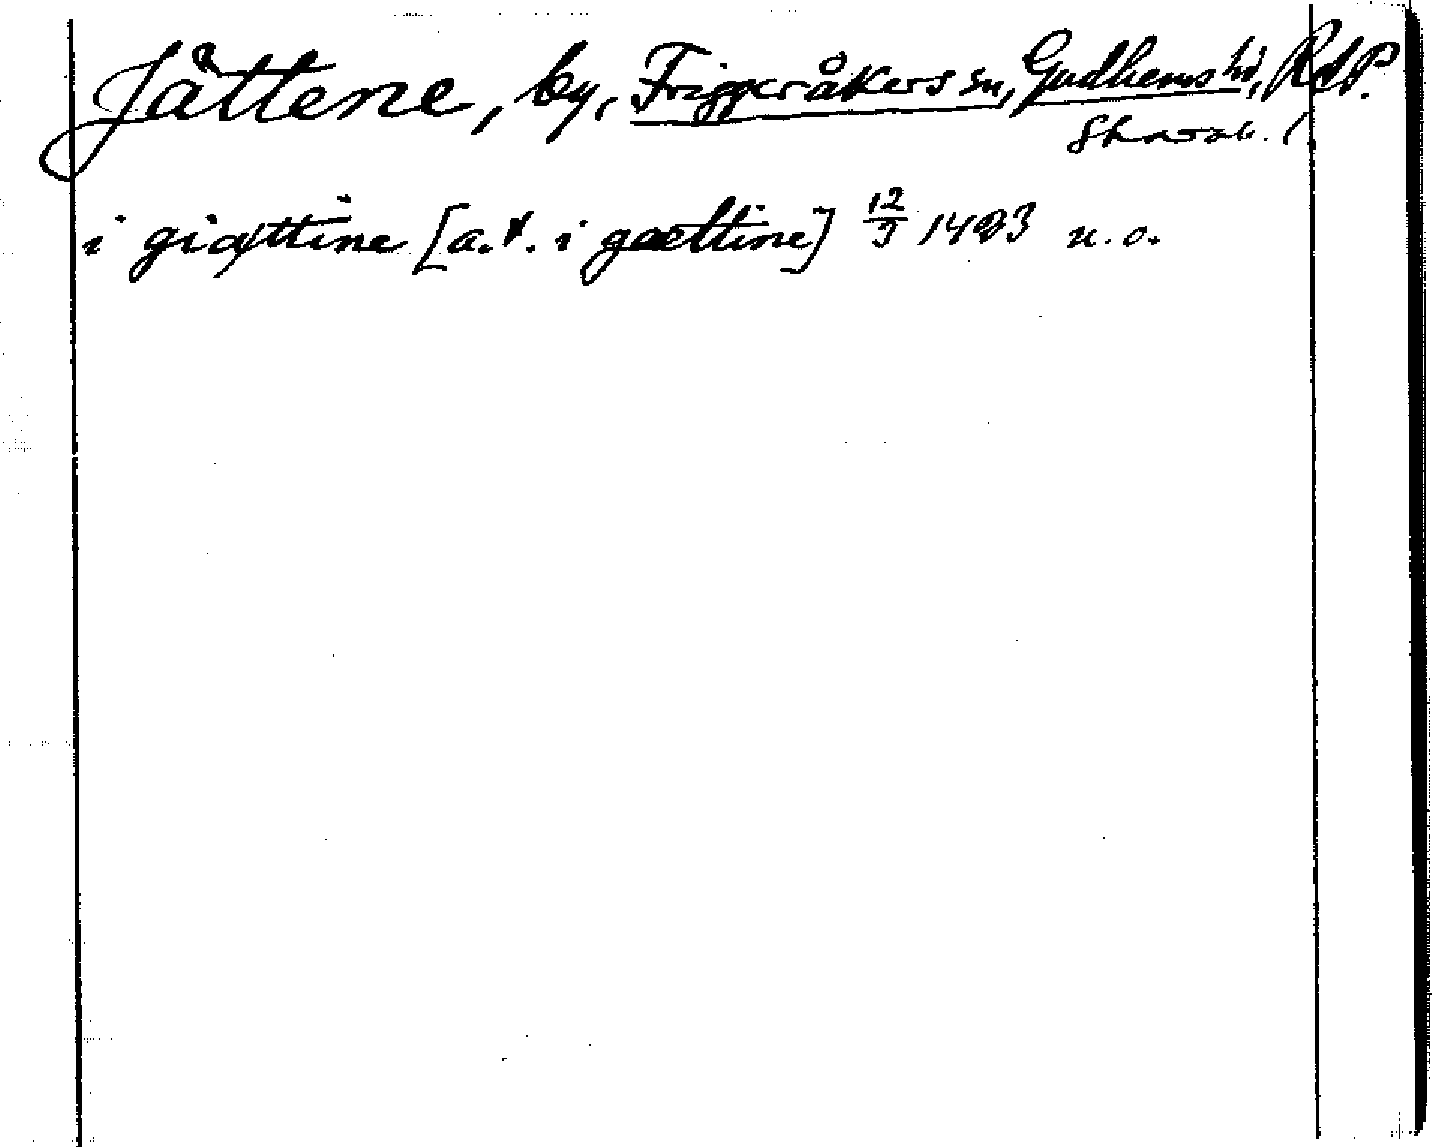 Jättene, by, Friggeråkers sn, Gudhems hd, RAP.
Skarab. l.
i giøttine [a.t. i gættine] 12/9 1423 u.o.